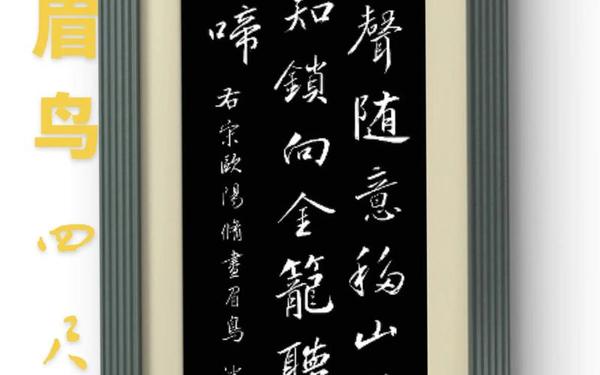 聲随意移山
知鎖向金籠聽
啼
右宋歐陽脩畫眉鳥
眉鸟 四尺